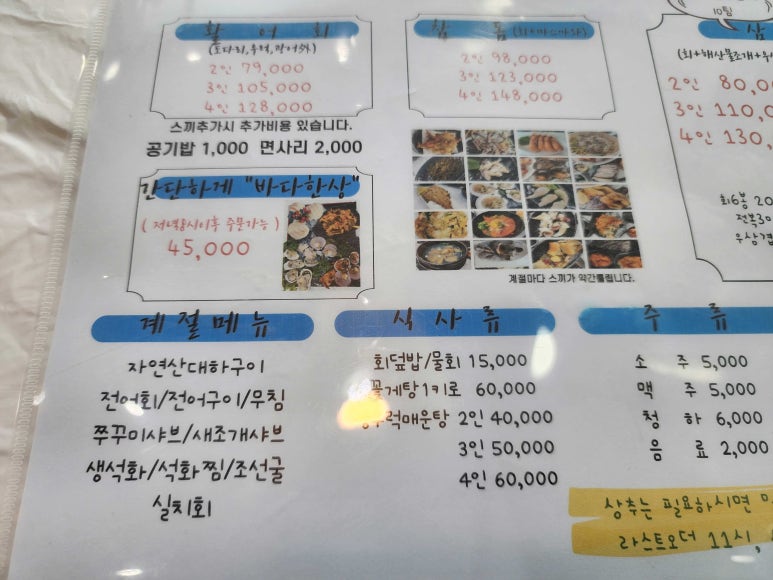 10팀
활어회
2인 79,000
3인 105,000
4인 128,000
참돔
2인 98,000
3인 123,000
4인 148,000
삼
2인 80,0
3인 110,0
4인 130,
스끼추가시 추가비용 있습니다.
공기밥 1,000 면사리 2,000
간단하게 "바다한상"
(저녁8시이후 주문가능)
45,000
계절마다 스끼가 약간틀립니다.
회6봉 20
전복30
우삼겹
계절메뉴
자연산대하구이
전어회/전어구이/무침
쭈꾸미샤브/새조개샤브
생석화/석화찜/조선굴
실치회
식사류
회덮밥/물회 15,000
꽃게탕1키로 60,000
우럭매운탕 2인 40,000
3인 50,000
4인 60,000
주류
소 주 5,000
맥 주 5,000
청 하 6,000
음 료 2,000
상추는 필요하시면
라스트오더 11시,